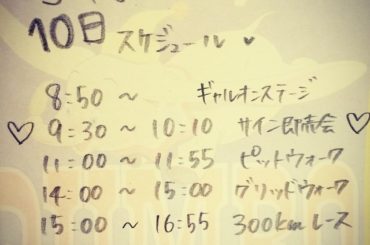 10日 スケジュール ♥
8:50 ～ ギャルオンステージ
♡ 9:30 ～ 10:10 サイン即売会 ♡
11:00 ～ 11:55 ピットウォーク
14:00 ～ 15:00 グリッドウォーク
15:00 ～ 16:55 300kmレース